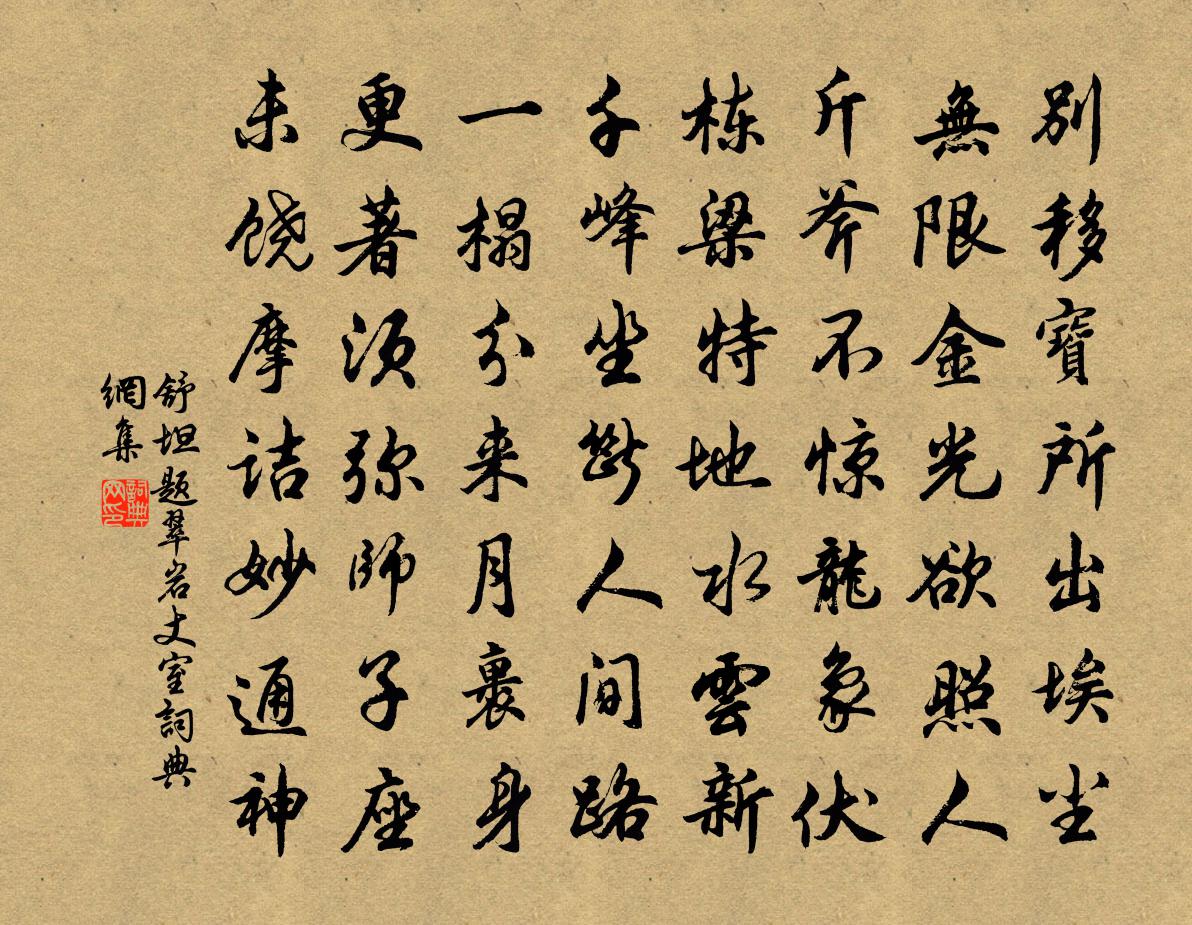 別移寶所出埃尘
無限金光欲照人
斤斧不惊龍象伏
栋梁特地水雲新
千峰坐斷人间路
一榻分来月裹身
更著须弥師子座
未饶摩诘妙通神
舒坦题翠岩丈室詞典
網集
詞典
网印